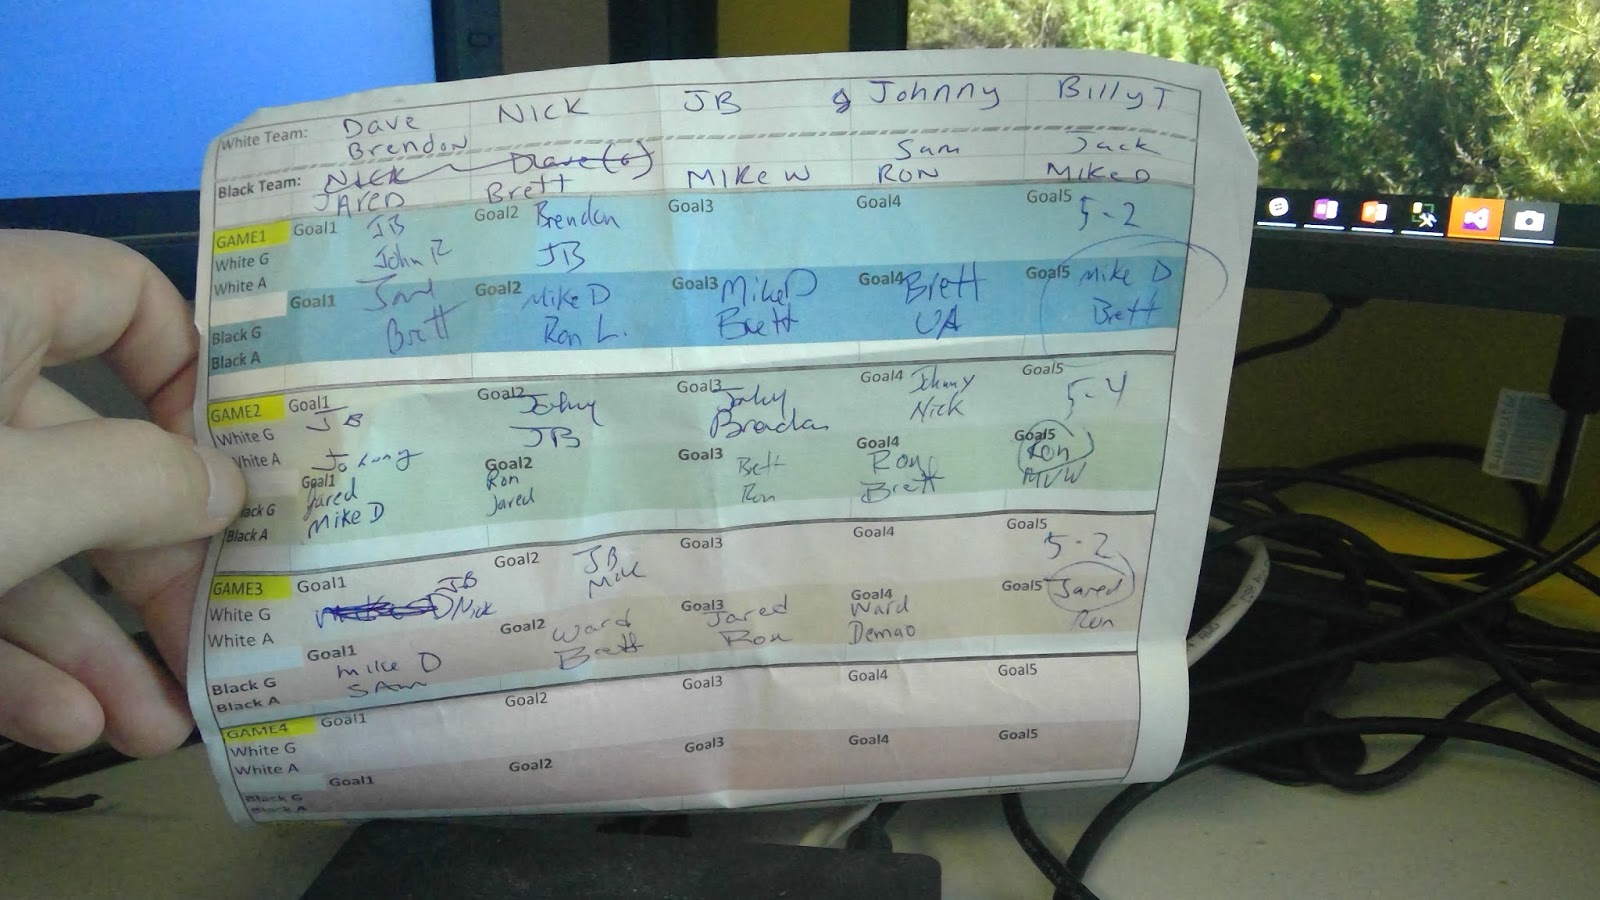 White Team: Dave NICK JB Johnny Billy T
Brendon Dave (G) Sam Jack
Black Team: Nick Brett MIKE W RON MIKE D
JARED
GAME1 Goal1 JB Goal2 Brendan Goal3 Goal4 Goal5 5-2
White G John R JB
White A
Goal1 Sam Goal2 Mike D Goal3 Mike D Goal4 Brett Goal5 Mike D
Black G Brett Ron L. Brett UA Brett
Black A
GAME2 Goal1 JB Goal2 Johny Goal3 Johy Goal4 Johnny Goal5 5-4
White G JB Brendan Nick
White A Johnny
Goal1 Jared Goal2 Ron Goal3 Brett Goal4 Ron Goal5 Ron
Black G Mike D Jared Ron Brett MVW
Black A
GAME3 Goal1 JB Goal2 JB Goal3 Goal4 Goal5 5-2
White G Nick
White A
Goal1 Mike D Goal2 Ward Goal3 Jared Goal4 Ward Goal5 Jared
Black G SAm Brett Ron Demao Ron
Black A
GAME4 Goal1 Goal2 Goal3 Goal4 Goal5
White G
White A
Goal1 Goal2 Goal3 Goal4 Goal5
Black G
Black A